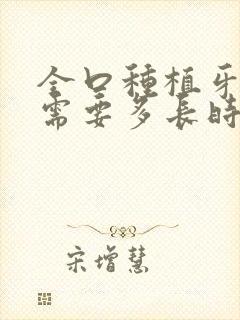 全口種植牙
需要多長時
宋增慧